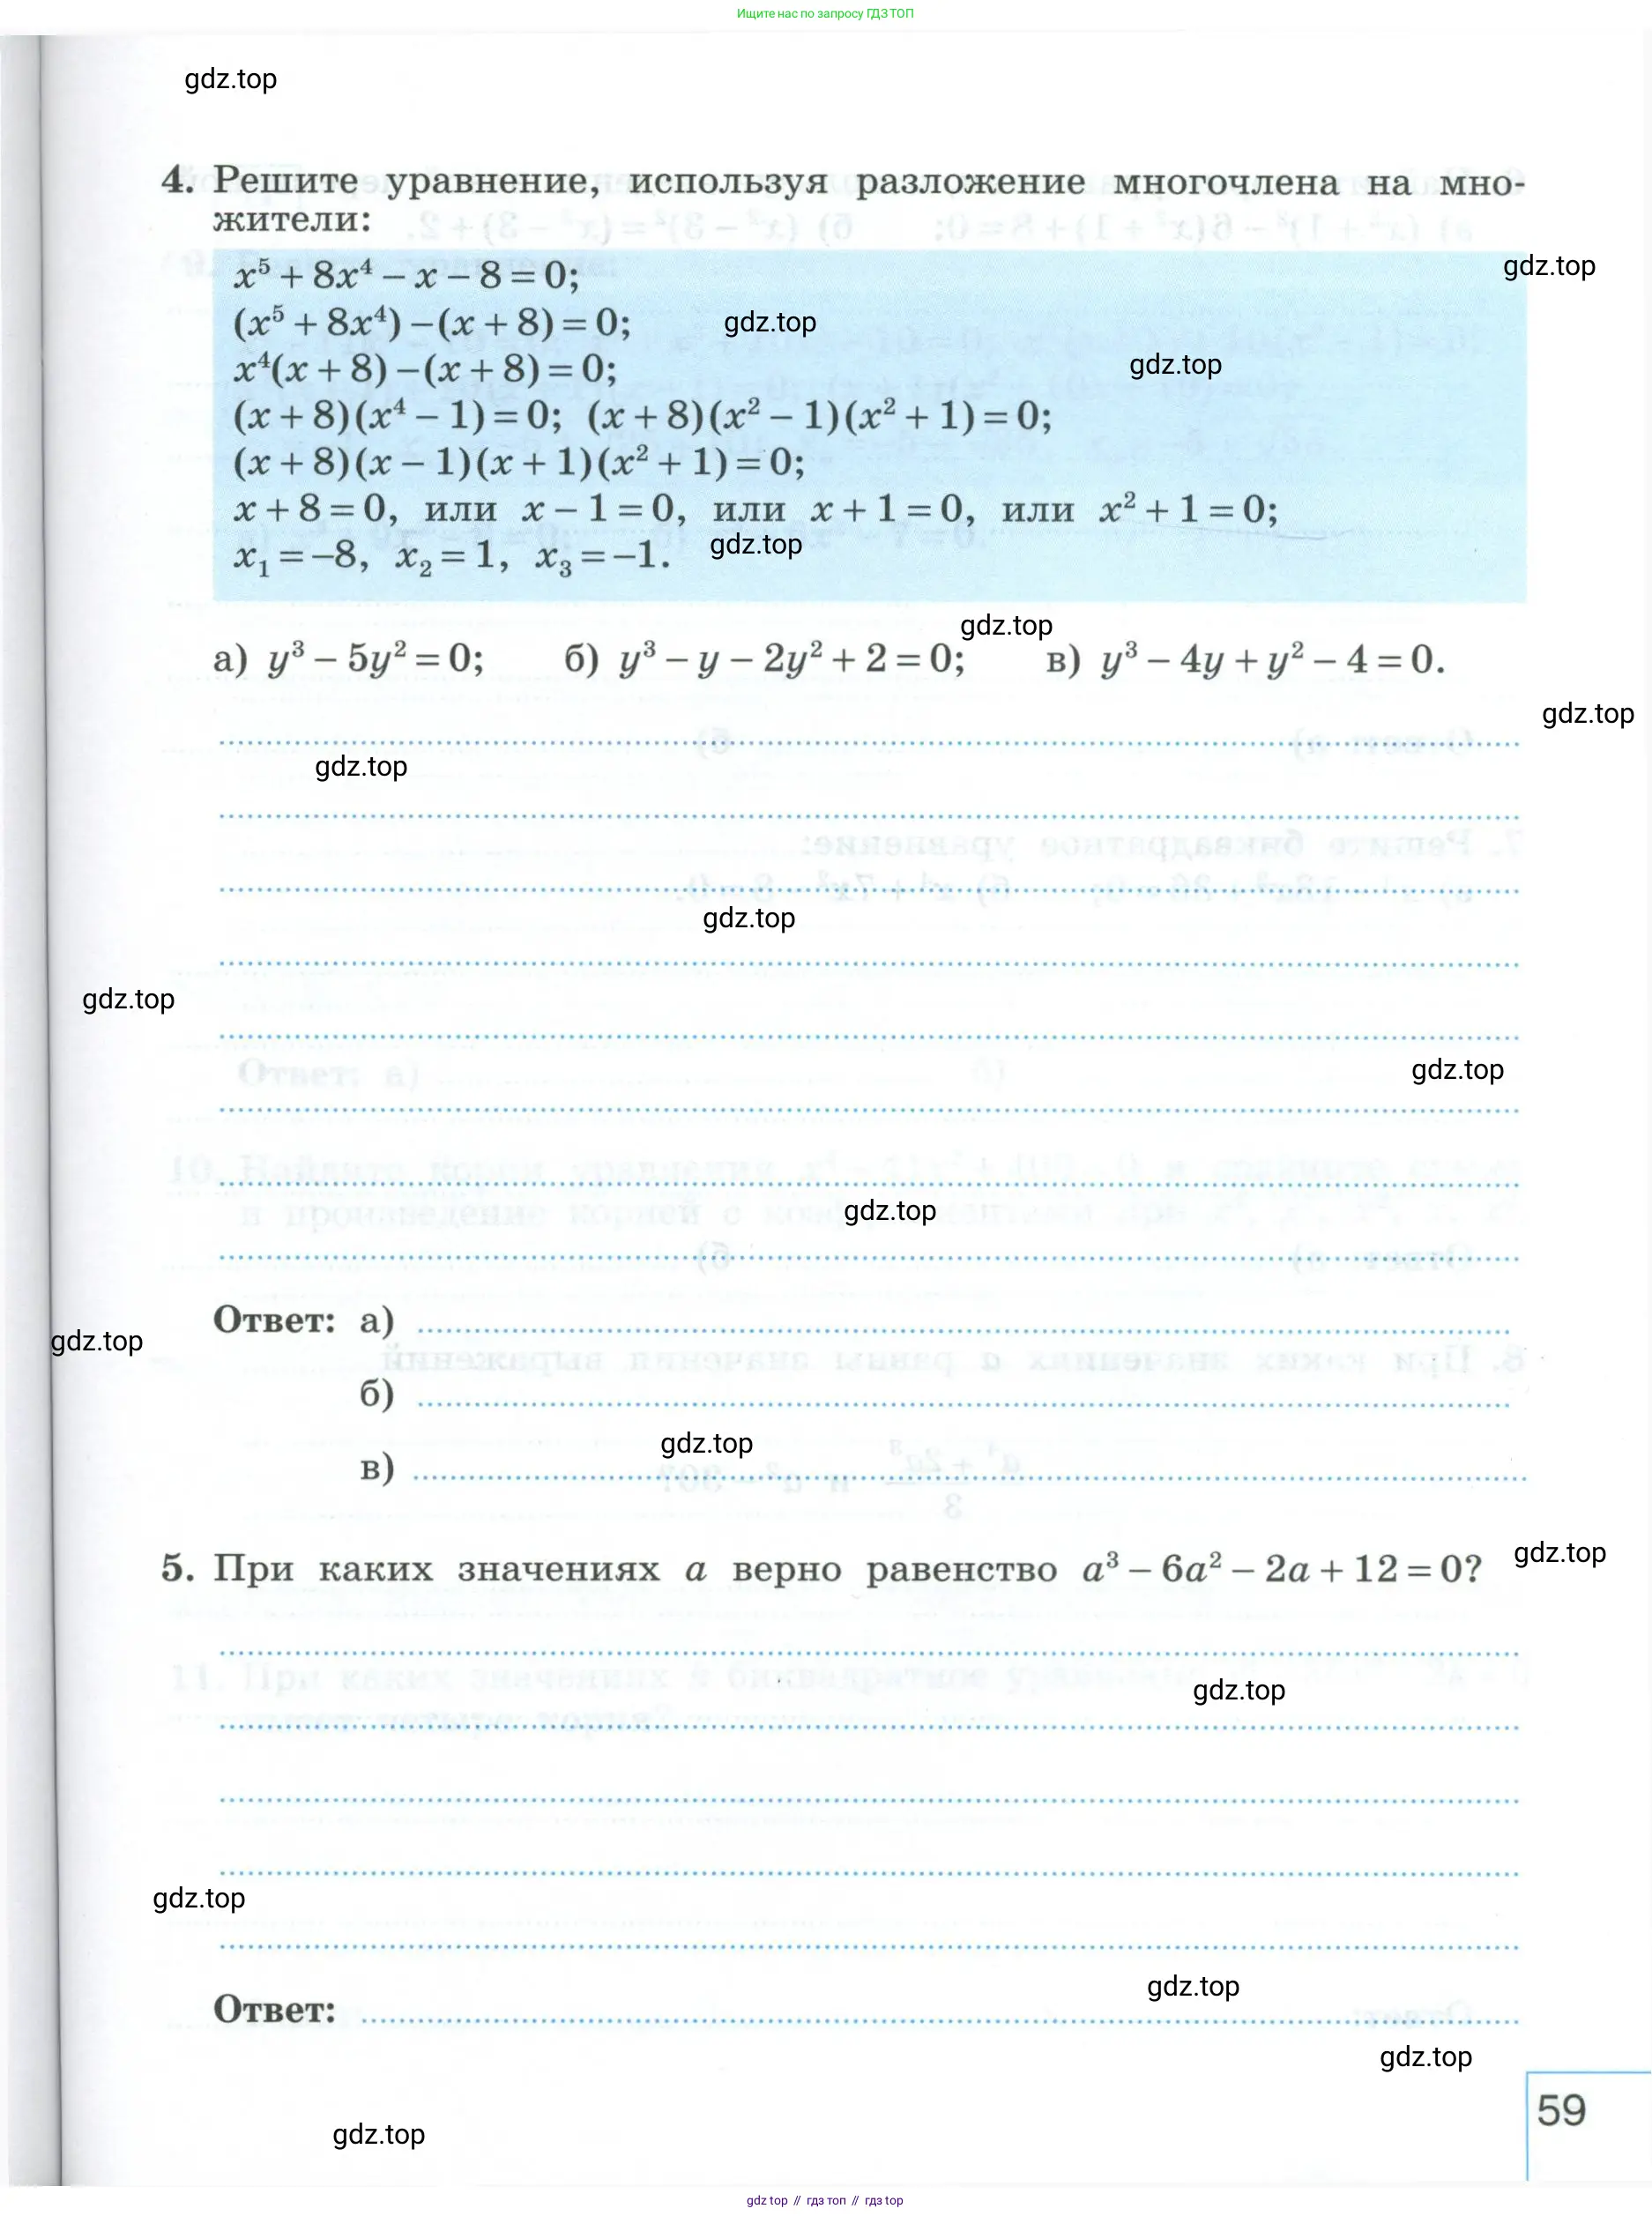 Ищите нас по запросу ГДЗ ТОП
gdz.top
4. Решите уравнение, используя разложение многочлена на мно-
жители:
x⁵ + 8x⁴ – x – 8 = 0;
gdz.top
(x⁵ + 8x⁴) – (x + 8) = 0;
gdz.top
x⁴(x + 8) – (x + 8) = 0;
gdz.top
(x + 8)(x⁴ – 1) = 0; (x + 8)(x² – 1)(x² + 1) = 0;
(x + 8)(x – 1)(x + 1)(x² + 1) = 0;
x + 8 = 0, или x – 1 = 0, или x + 1 = 0, или x² + 1 = 0;
x₁ = –8, x₂ = 1, x₃ = –1.
gdz.top
gdz.top
а) y³ – 5y² = 0; б) y³ – y – 2y² + 2 = 0; в) y³ – 4y + y² – 4 = 0.
gdz.top
gdz.top
gdz.top
gdz.top
gdz.top
gdz.top
Ответ: а)
gdz.top
б)
gdz.top
в)
5. При каких значениях a верно равенство a³ – 6a² – 2a + 12 = 0?
gdz.top
gdz.top
gdz.top
gdz.top
Ответ:
gdz.top
59
gdz.top
gdz top // гдз топ // гдз top